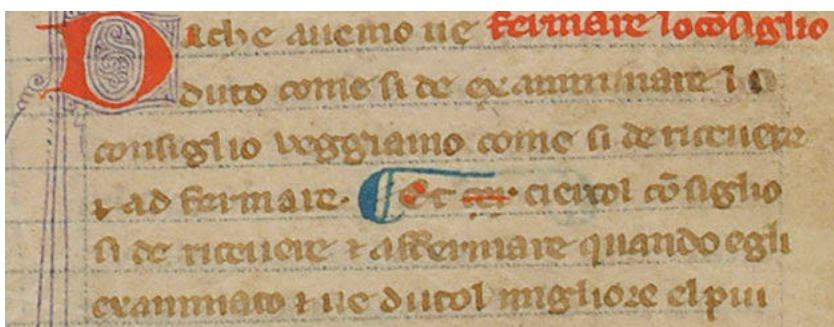 Dache auemo ue fermare lo cōsiglio
duto come si de examminare lo
consiglio veggiamo come si de riceuere
⁊ ad fermare. Et ciertol cōsiglio
si de riceuere ⁊ affermare quando egli
examinato ⁊ ue dutol migliore el piu